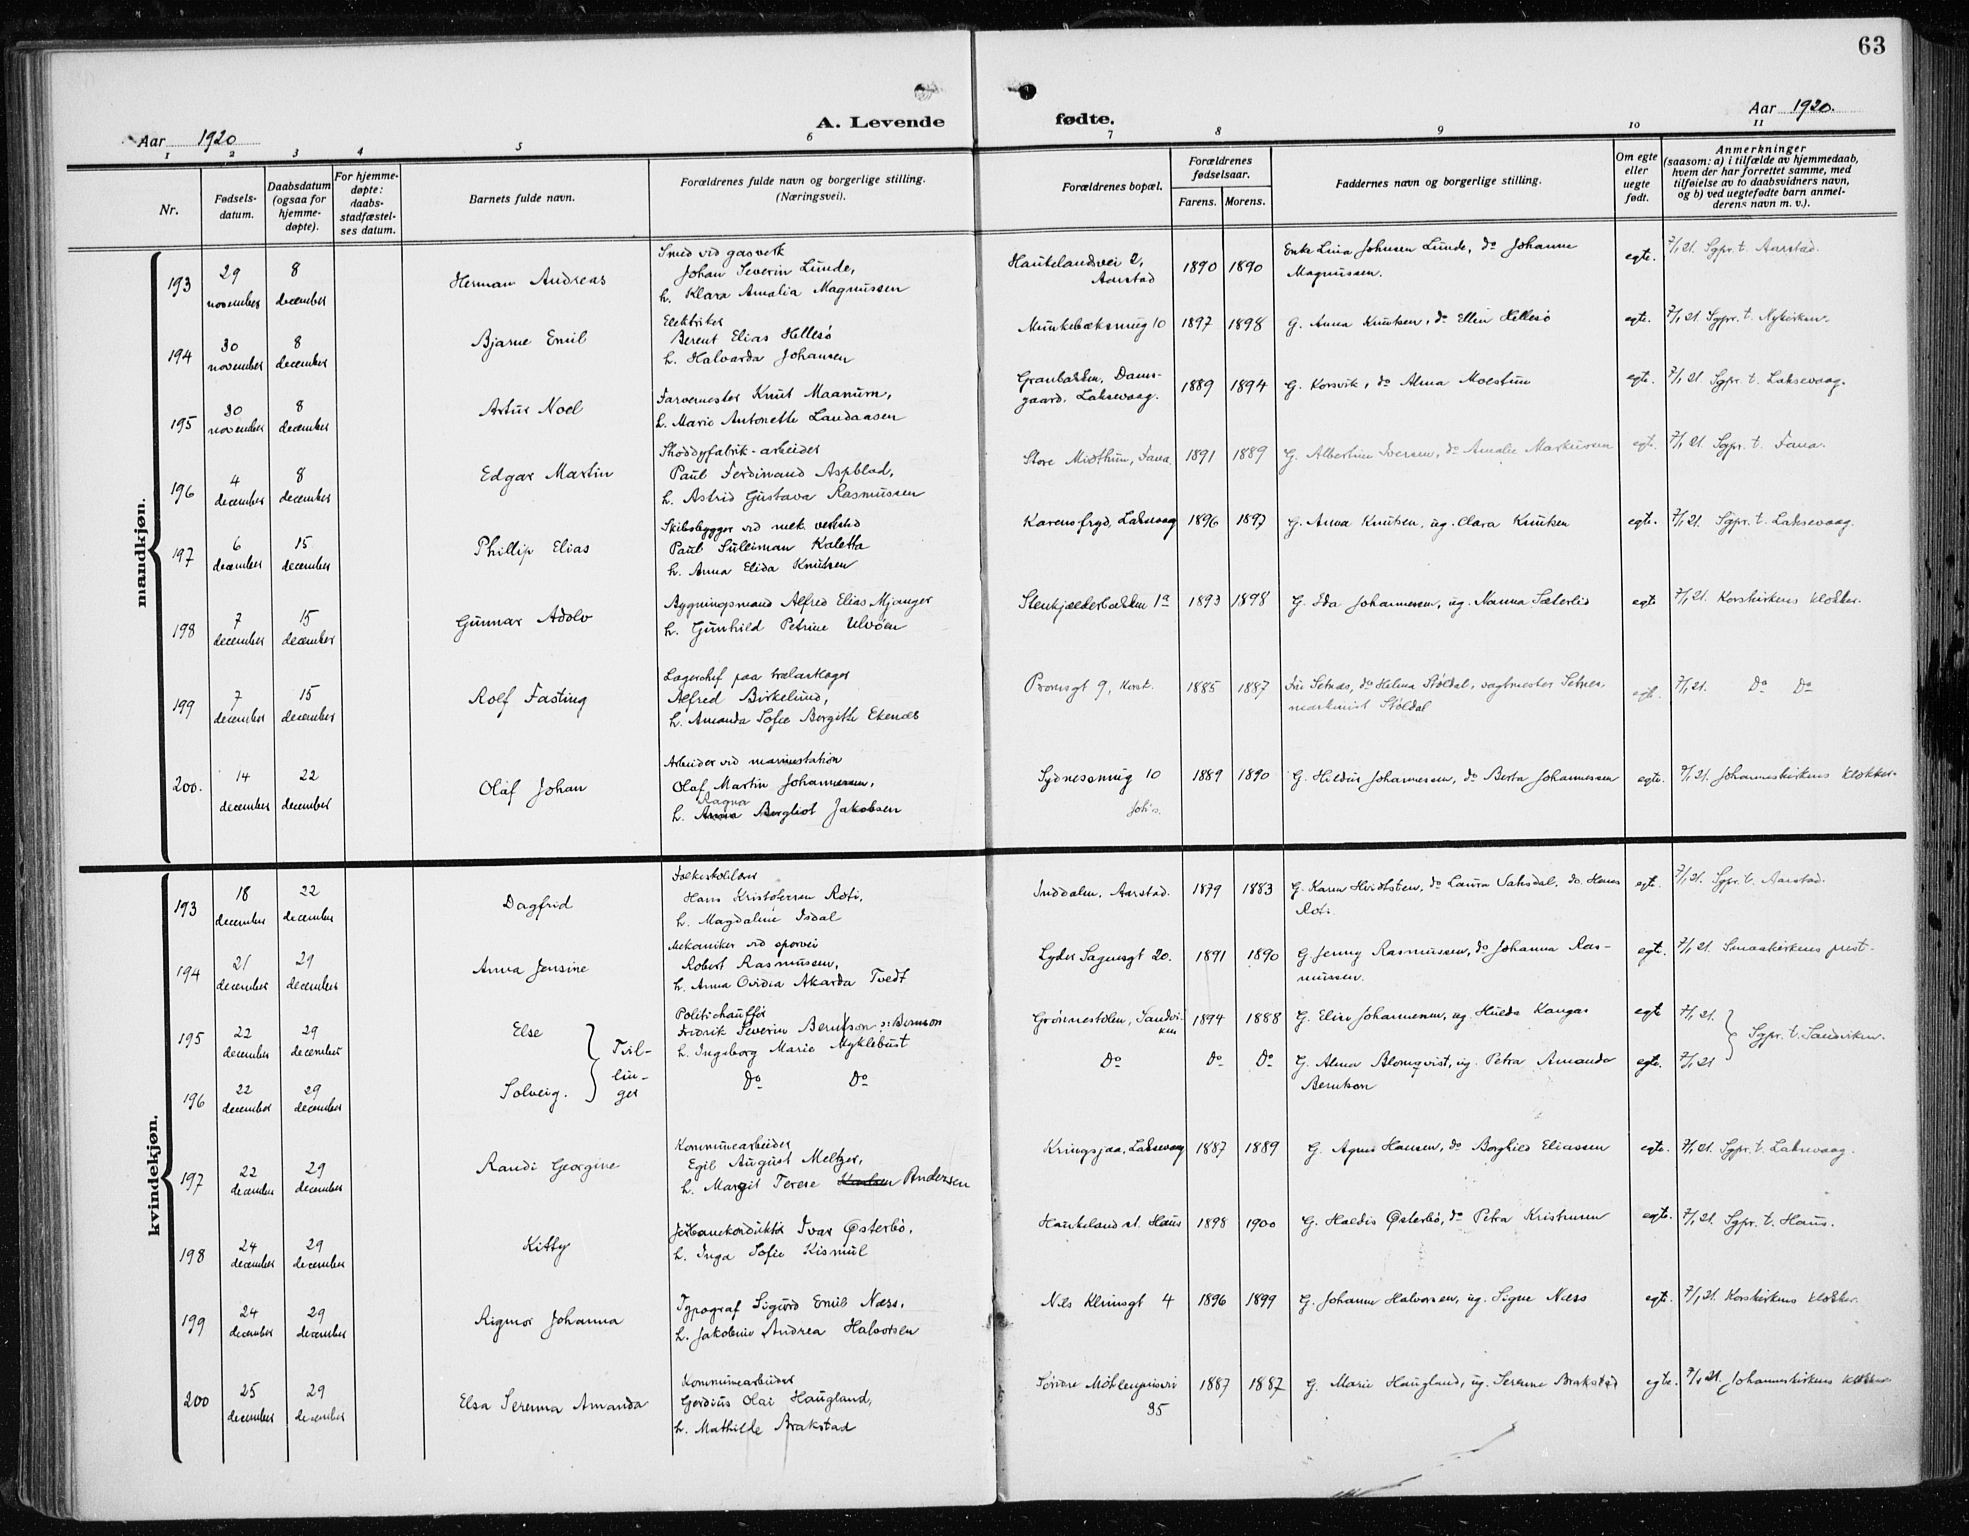 63
Aar 1920
A. Levende
fødte.
Aar 1920.
1 2 3 4 5 6 7 8 9 10 11
Nr.
Fødsels-
datum.
Daabsdatum
(ogsaa for
hjemme-
døpte).
For hjemme-
døpte:
daabs-
stadfæstel-
ses datum.
Barnets fulde navn.
Forældrenes fulde navn og borgerlige stilling.
(Næringsvei).
Forældrenes bopæl.
Forældrenes
fødselsaar.
Farens. Morens.
Faddernes navn og borgerlige stilling.
Om egte
eller
uegte
født.
Anmerkninger
(saasom: a) i tilfælde av hjemmedaab,
hvem der har forrettet samme, med
tilføielse av to daabsvidners navn,
og b) ved uegtefødte barn anmel-
derens navn m. v.).
mandkjøn.
193
29
november
8
december
Herman Andreas
Smed vid gasverk
Johan Severin Lunde,
h. Klara Amalia Magnussen
Haukelandsvei 2,
Aarstad
1890 1890
Enke Lina Johnsen Lunde, do Johanne
Magnussen.
egte.
7/1 21. Sgpr. t. Aarstad.
194
30
november
8
december
Bjarne Emil
Elektriker
Berent Elias Hellesø
h. Halvarda Johansen
Munkebæksmug 10
1897 1898
G. Anna Knutsen, do Ellen Hellesø
egte.
7/1 21. Sgpr. t. Nykirken.
195
30
november
8
december
Artur Noel
Farvermester Knut Maanum,
h. Marie Antonette Landaasen
Granbakken, Dams-
gaard, Laksevaag.
1889 1894
G. Korsvik, do Alma Moestue
egte.
7/1 21 Sgpr. t. Laksevaag.
196
4
december
8
december
Edgar Martin
Shoddyfabrik-arbeider
Paul Ferdinand Aspblad,
h. Astrid Gustava Rasmussen
Store Midthun, Fana.
1891 1889
G. Albertine Iversen, do Amalie Markussen
egte.
7/1 21. Sgpr. t. Fana.
197
6
december
15
december
Phillip Elias
Skibsbygger vid mek. verksted
Paul Suleiman Kaletta
h. Anna Elida Knutsen
Karensfryd, Laksevaag
1896 1897
G. Anna Knutsen, ug. Clara Knutsen
egte.
7/1 21. Sgpr. t. Laksevaag.
198
7
december
15
december
Gunnar Adolv
Bygningsmand Alfred Elias Mjanger
h. Gunhild Petrine Ulvøen
Stenkjælderbakken 1a
1893 1898
G. Ida Johannesen, ug. Nanna Sæterlid
egte
7/1 21. Korskirkens klokker.
199
7
december
15
december
Rolf Fasting
Lagerchef paa trælastlager
Alfred Birkelund,
h. Amanda Sofie Bergitte Ekenæs
Promsgt 9, Korsk.
1885 1887
Fru Setnes, do Helma Støldal, vagtmester Setnes,
maskinist Støldal
egte.
7/1 21. Do Do
200.
14
december
22
december
Olaf Johan
Arbeider vid marinestation
Olaf Martin Johannessen,
Ragna
h. Anna Bergliot Jakobsen
Sydnessmug 10
Joh's.
1889 1890
G. Hildur Johannessen, do Berta Johannessen
egte.
7/1 21. Johanneskirkens klokker.
kvindekjøn.
193
18
december
22
december
Dagfrid
Folkeskolelærer
Hans Kristofersen Roti,
h. Magdaline Isdal
Inddalen, Aarstad.
1879 1883
G. Karen Hvidtsten, do Laura Valsdal, do. Hans
Roti.
egte.
7/1 21. Sgpr. t. Aarstad.
194
21
december
29
december
Anna Jensine
Mekaniker vid sporvei
Robert Rasmussen,
h. Anna Ovidia Akarda Tvedt
Lyder Sagensgt 20.
1891 1890
G. Jenny Rasmussen, do Johanna Ras-
mussen.
egte.
7/1 21. Smaakirkens prest.
195
22
december
29
december
Else
Politichauffør
Fredrik Severin Berntson : Bernson
h. Ingeborg Marie Myklebust
Grønnestølen, Sandvi-
ken
1894 1888
G. Elise Johannesen, ug. Hulda Kangas
egte
7/1 21.
Tvil-
lin-
ger
Sgpr. t. Sandviken.
196
22
december
29
december
Solveig.
Do Do
Do
Do Do
G. Alma Blomqvist, ug. Petra Amanda
Berntson
egte.
7/1 21
197
22
december
29
december
Randi Georgine
Kommunearbeider
Egil August Meltzer,
h. Margit Terese Karlsen Andersen
Kringsjaa, Laksevaag
1887 1889
G. Agnes Hansen, do Borghild Eliassen
egte.
7/1 21. Sgpr. t. Laksevaag.
198
24
december
29
december
Kitty
Jernbanekonduktør Ivar Østerbø,
h. Inga Sofie Kismul
Haukeland st. Haus
1898 1900
G. Haldis Østerbø, do Petra Kristensen
egte.
7/1 21. Sgpr. t. Haus.
199
24
december
29
december
Rigmor Johanna
Typograf Sigurd Emil Næss,
h. Jakobine Andrea Halvorsen
Nils Klimsgt 4
1896 1899
G. Johanne Halvorsen, ug. Signe Næss
egte.
7/1 21. Korskirkens klokker.
200
25
december
29
december
Elsa Serenna Amanda
Kommunearbeider
Gerdius Olai Haugland,
h. Mathilde Brakstad
Søndre Møhlenprisvei
35
1887 1887
G. Marie Haugland, ug. Serenne Brakstad
egte.
7/1 21. Johanneskirkens klokker